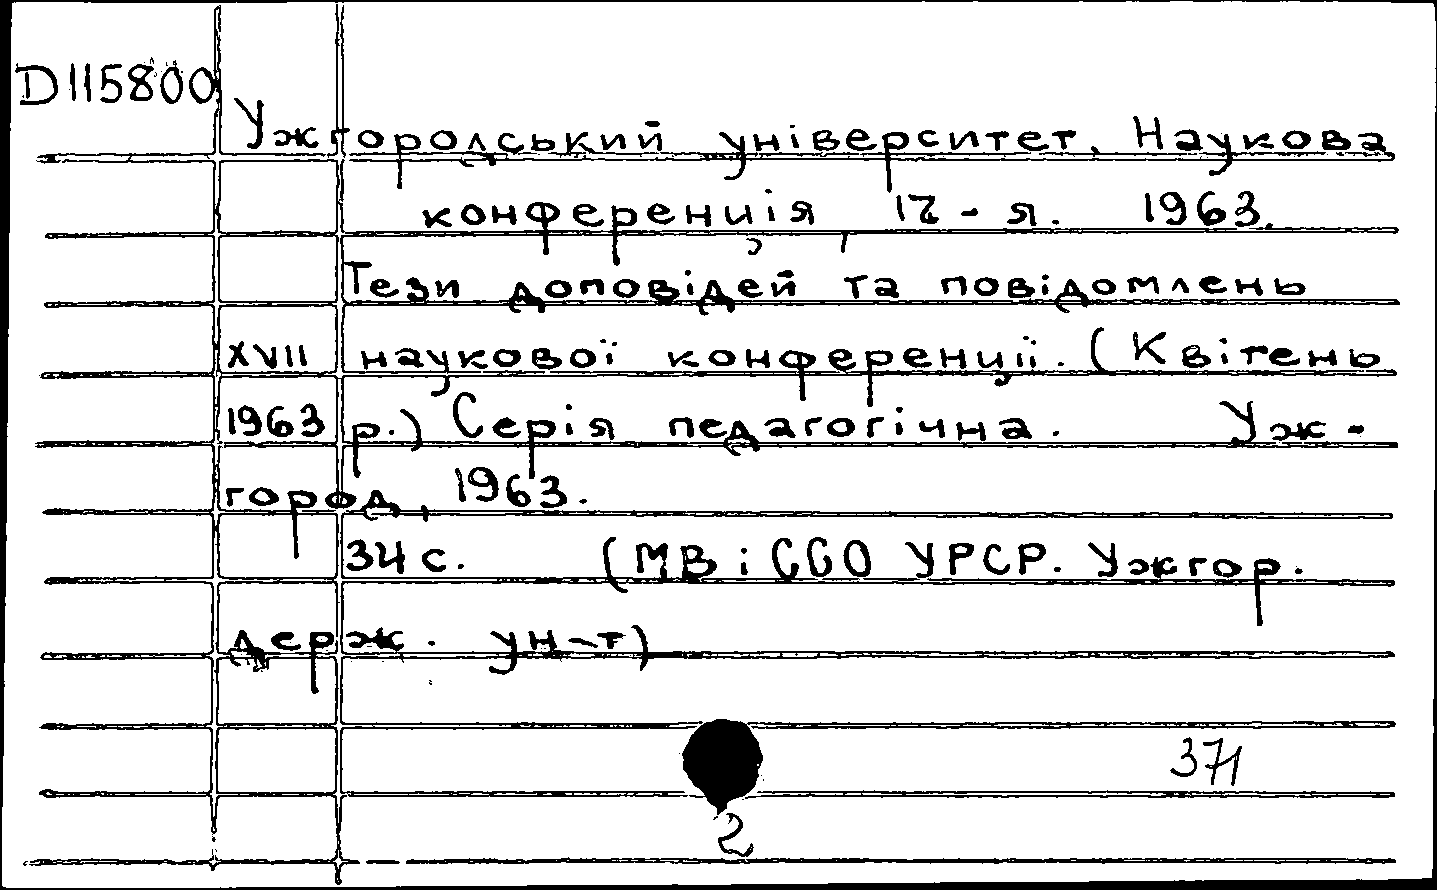 D115800
Ужгородський університет, Наукова
конференція, 17-я. 1963.
Тези доповідей та повідомлень
XVII наукової конференції. (Квітень
1963 р.) Серія педагогічна. Уж-
город, 1963.
34 с. (МВ і ССО УРСР. Ужгор.
держ. ун-т)
371
2